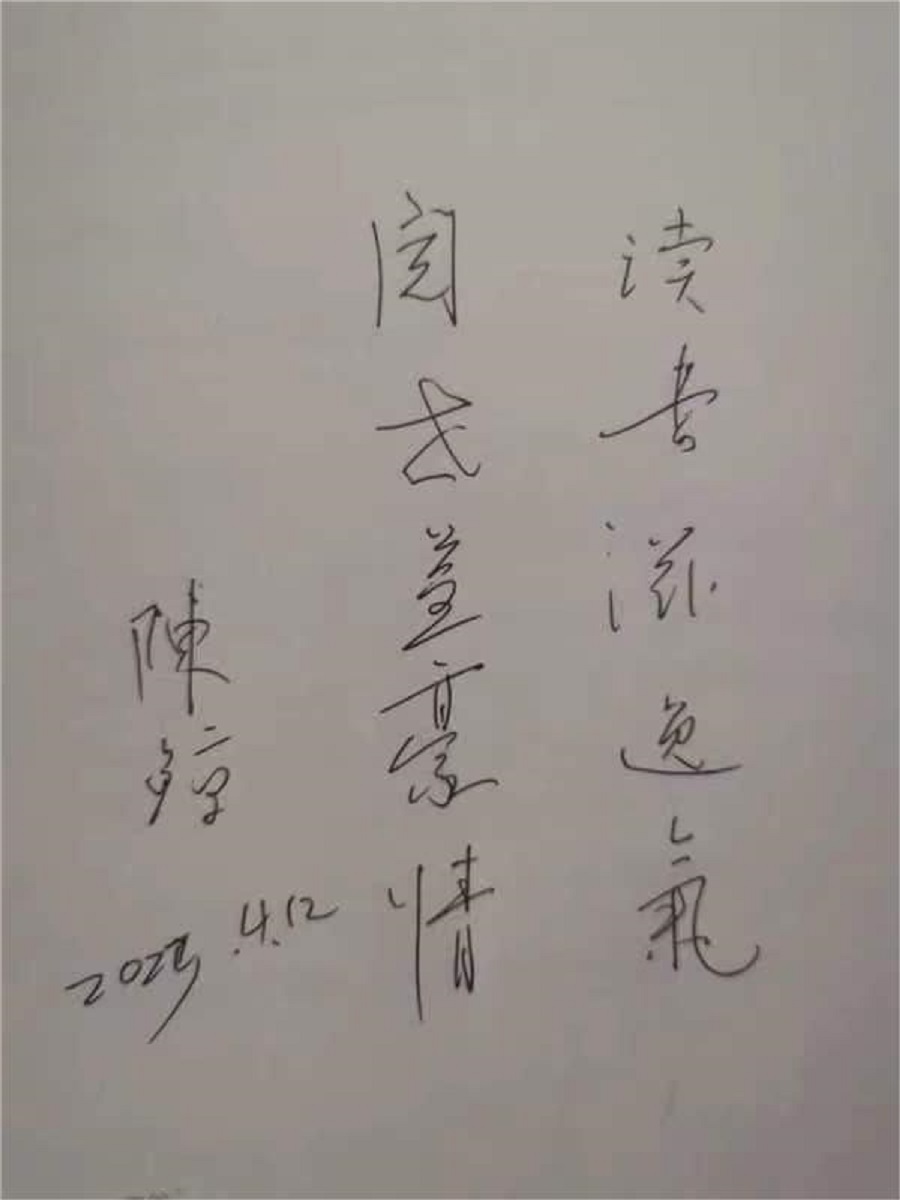 读书滋逸氣
阅世益豪情
陳鲸
4.12